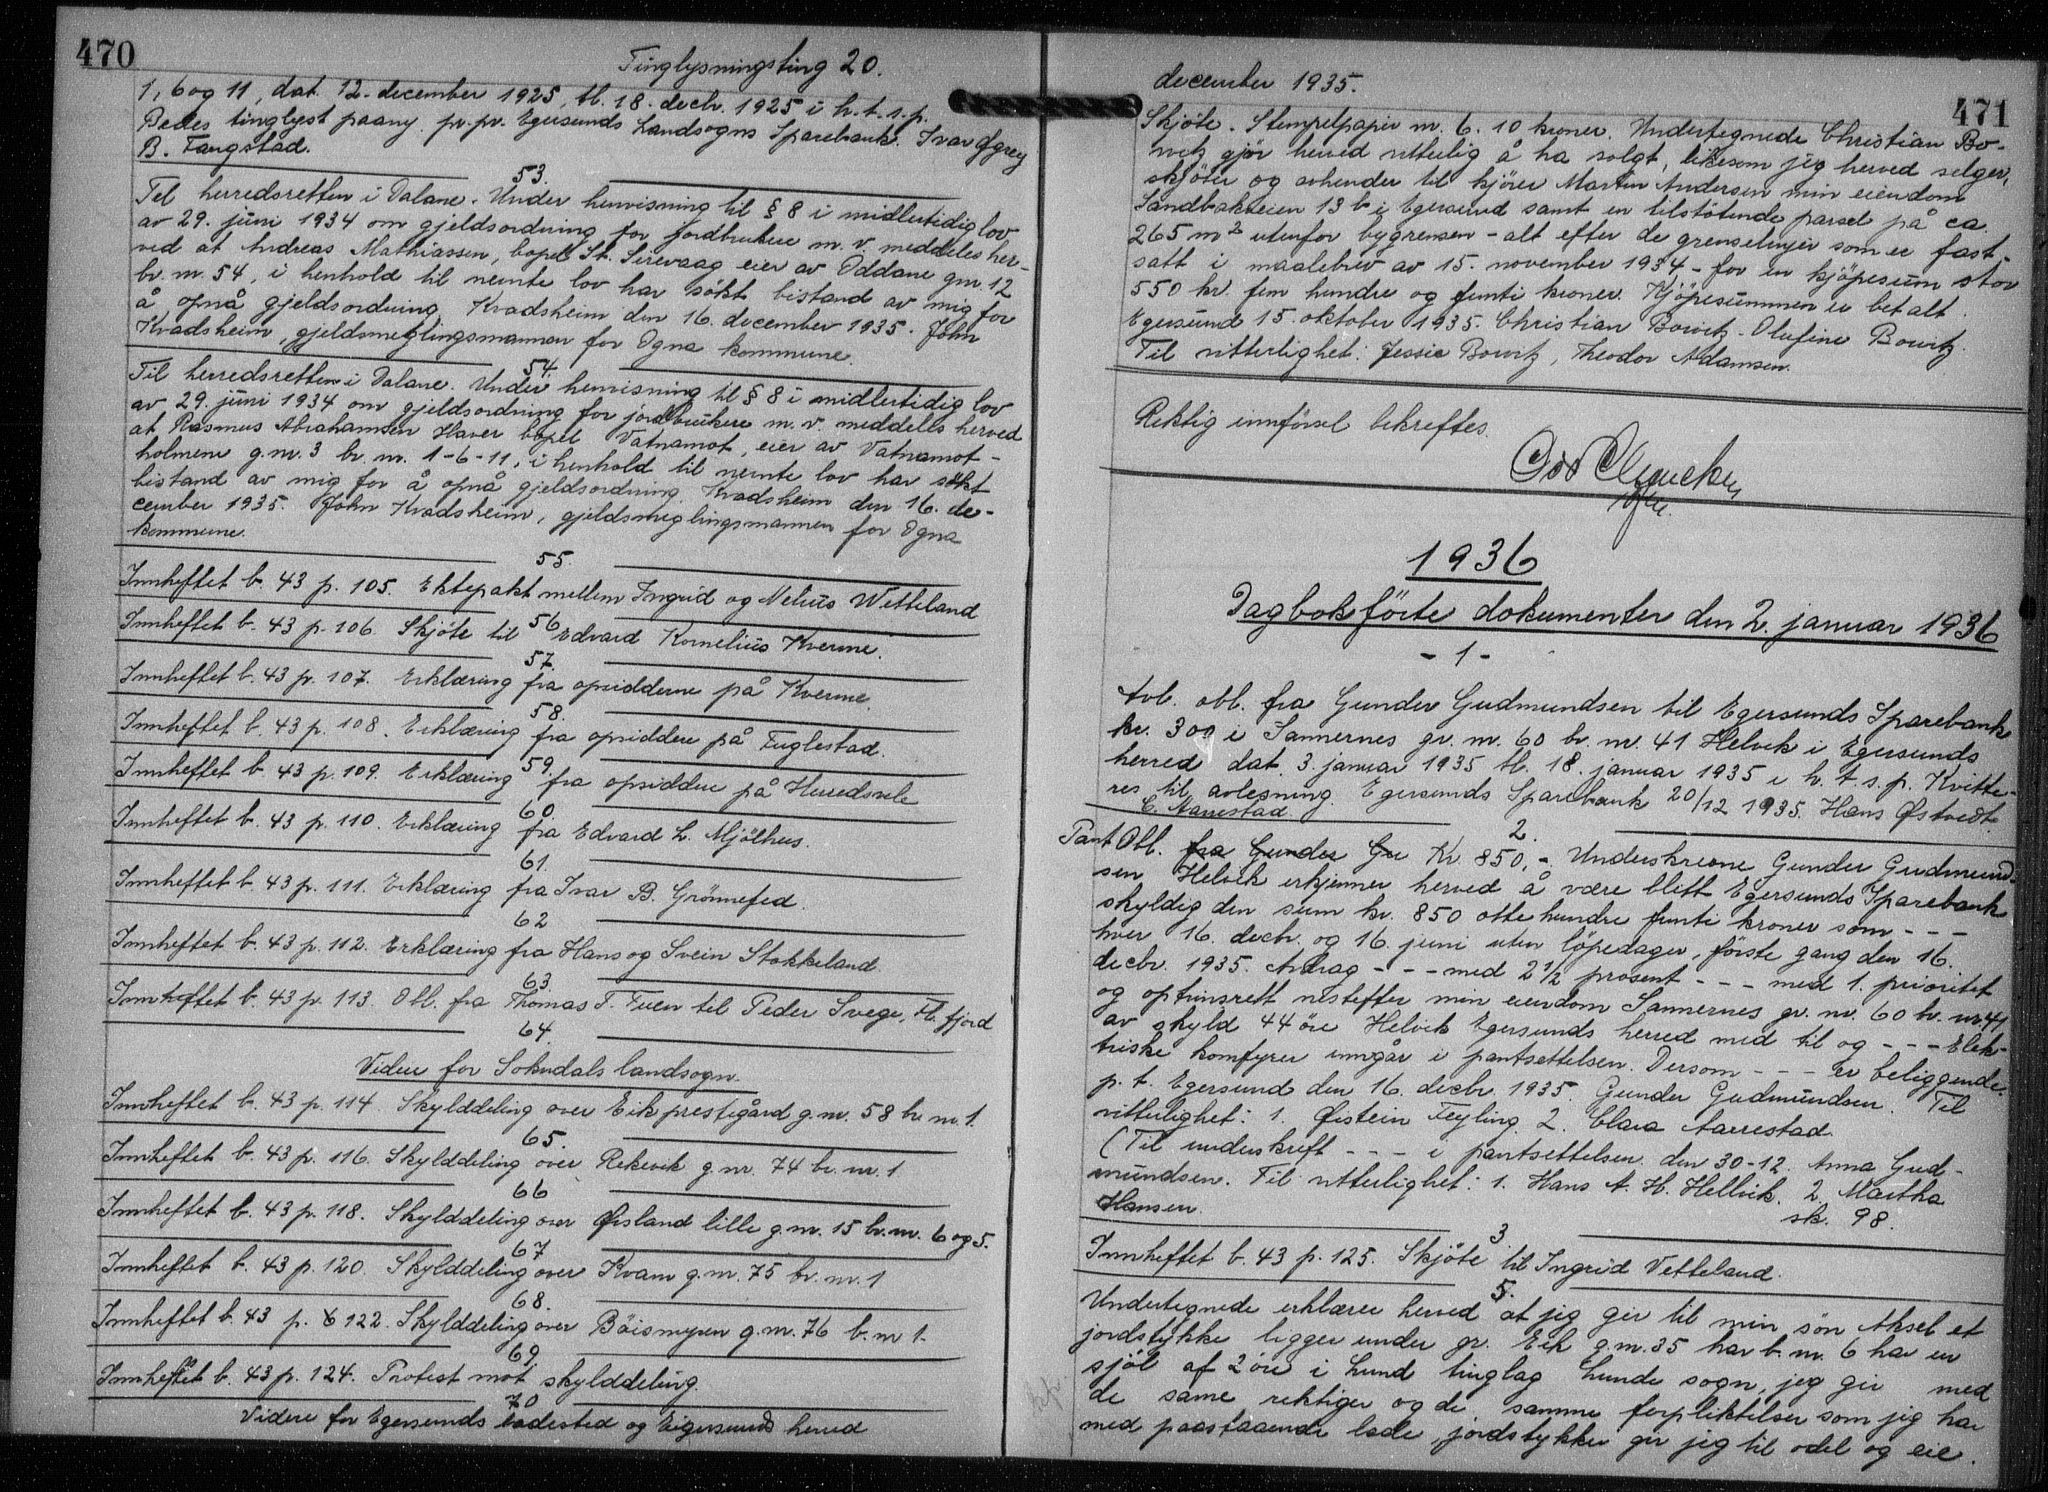 470
Tinglysningsting 20.
1, 6 og 11, dat. 12. december 1925, tl. 18. decbr. 1925 i h. t. s. p.
Bedes tinglyst paany. pr. pr. Egersunds Landsogns Sparebank. Ivar Øgrey
B. Tangstad.
53.
Til herredsretten i Dalane. Under henvisning til § 8 i midlertidig lov
av 29. juni 1934 om gjeldsordning for jordbrukere m. v. meddeles her-
ved at Andreas Mathiassen, bopel St. Sirevaag eier av Oddane gnr. 12
br. nr. 54, i henhold til nemte lov har søkt bistand av mig for
å opnå gjeldsordning. Kvadsheim den 16. december 1935. John
Kvadsheim, gjeldsmeglingsmannen for Ogna kommune
54.
Til herredsretten i Dalane. Under henvisning til § 8 i midlertidig lov
av 29. juni 1934 om gjeldsordning for jordbrukere m. v. meddeles herved
at Rasmus Abrahamsen Haver bopel Vatnamot, eier av Vatnamot-
holmene g.nr. 3 br. nr. 1-6-11, i henhold til nemte lov har søkt
bistand av mig for å opnå gjeldsordning. Kvadsheim den 16. de-
cember 1935. John Kvadsheim, gjeldsmeglingsmannen for Ogna
kommune.
55.
Innheftet b. 43 p. 105. Ektepakt mellem Ingrid og Nelius Wetteland
56
Innheftet b. 43 p. 106. Skjöte til Edvard Kornelius Kverme.
57.
Innheftet b. 43 p. 107. Erklæring fra opsidderne på Kverme.
58.
Innheftet b. 43 p. 108. Erklæring fra opsiddere på Fuglestad.
59.
Innheftet b. 43 p. 109. Erklæring fra opsiddere på Herredsvele
60
Innheftet b. 43 p. 110. Erklæring fra Edvard L. Mjölhus.
61.
Innheftet b. 43 p. 111. Erklæring fra Ivar B. Grönnefed.
62
Innheftet b. 43 p. 112. Erklæring fra Hans og Svein Stokkeland.
63.
Innheftet b. 43 p. 113. Obl. fra Thomas T. Tuen til Peder Svege, Fl. fjord
64.
Videre for Sokndals landsogn.
Innheftet b. 43 p. 114. Skylddeling over Eik prestegård g.nr. 58 br nr. 1.
65.
Innheftet b. 43 p. 116. Skylddeling over Rekevik g.nr. 74 br. nr. 1
66
Innheftet b. 43 p. 118. Skylddeling over Øisland lille g.nr. 15 br. nr. 6 og 5.
67
Innheftet b. 43 p. 120. Skylddeling over Kvam g.nr. 75 br. nr. 1
68.
Innheftet b. 43 p. 122. Skylddeling over Böismyren g.nr. 76 b.nr 1.
69
Innheftet b. 43 p. 124. Protest mot skylddeling.
70
Videre for Egersunds ladested og Eigersund herred
december 1935.
471
Skjöte. Stempelpapir m. 6. 10 kroner. Undertegnede Christian Bo-
witz gjör herved vitterlig å ha solgt, likesom jeg herved selger,
skjöter og avhender til kjörer Martin Andersen min eiendom
Sandbakveien 13 b i Egersund samt en tilstötende parsel på ca.
265 m² utenfor bygrensen - alt efter de grenselinjer som er fast-
satt i maalebrev av 15. november 1934 - for en kjöpesum stor
550 kr. fem hundre og femti kroner. Kjöpesummen er betalt.
Egersund 15. oktober 1935. Christian Bowitz. Olufine Bowitz.
Til vitterlighet: Jessie Bowitz, Theodor Adamsen.
Riktig innförsel bekreftes.
1936
Dagbokförte dokumenter den 2. januar 1936
- 1 -
Avl. obl. fra Gunder Gudmundsen til Egersunds Sparebank
kr. 300 i Sannernes gr. nr. 60 br. nr. 41 Helvik i Egersunds
herred dat. 3. januar 1935 tl. 18. januar 1935 i h. t. s. p. Kvitte-
res til avlesning. Egersunds Sparebank 20/12 1935. Hans Østvedt.
C. Narrestad.
2.
Pant Obl. fra Gunder Gu Kr. 850,- Underskrevne Gunder Gudmund-
sen Helvik erkjenner herved å være blitt Egersunds Sparebank
skyldig den sum kr. 850 otte hundre femti kroner som - - -
hver 16. decbr. og 16. juni uten löpedager, förste gang den 16.
decbr. 1935. Avdrag - - - med 2 1/2 prosent - - - med 1. prioritet
og optrinsrett nesteffter min eiendom Sannernes gr. nr. 60 br. nr 41
av skyld 44 öre Helvik Egersunds herred med til og - - - Elek-
triske komfyrer inngår i pantsettelsen. Dersom - - - er beliggende.
p. t. Egersund den 16. decbr. 1935. Gunder Gudmundsen. Til
vitterlighet: 1. Øistein Feyling. 2. Clara Aarrestad.
(Til underskrift - - - i pantsettelsen. den 30-12. Anna Gud-
mundsen. Til vitterlighet: 1. Hans A. H. Hellvik. 2. Martha
Hansen.
sk. 98.
3
Innheftet b. 43 p. 125. Skjöte til Ingrid Vetteland.
5.
Undertegnede erklærer herved at jeg gir til min sön Aksel et
jordstykke ligger under gr. Eik g.nr. 35 har b. nr. 6 har en
sjöl af 2 öre i Lund tinglag Lunde sogn, jeg gir med
de same rektiger og de samme forpliktelser som jeg har
med paastaaende lade, jordstykke gir jeg til odel og eie.